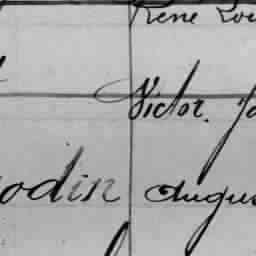 René Lou
Victor. Ja
odin Augus